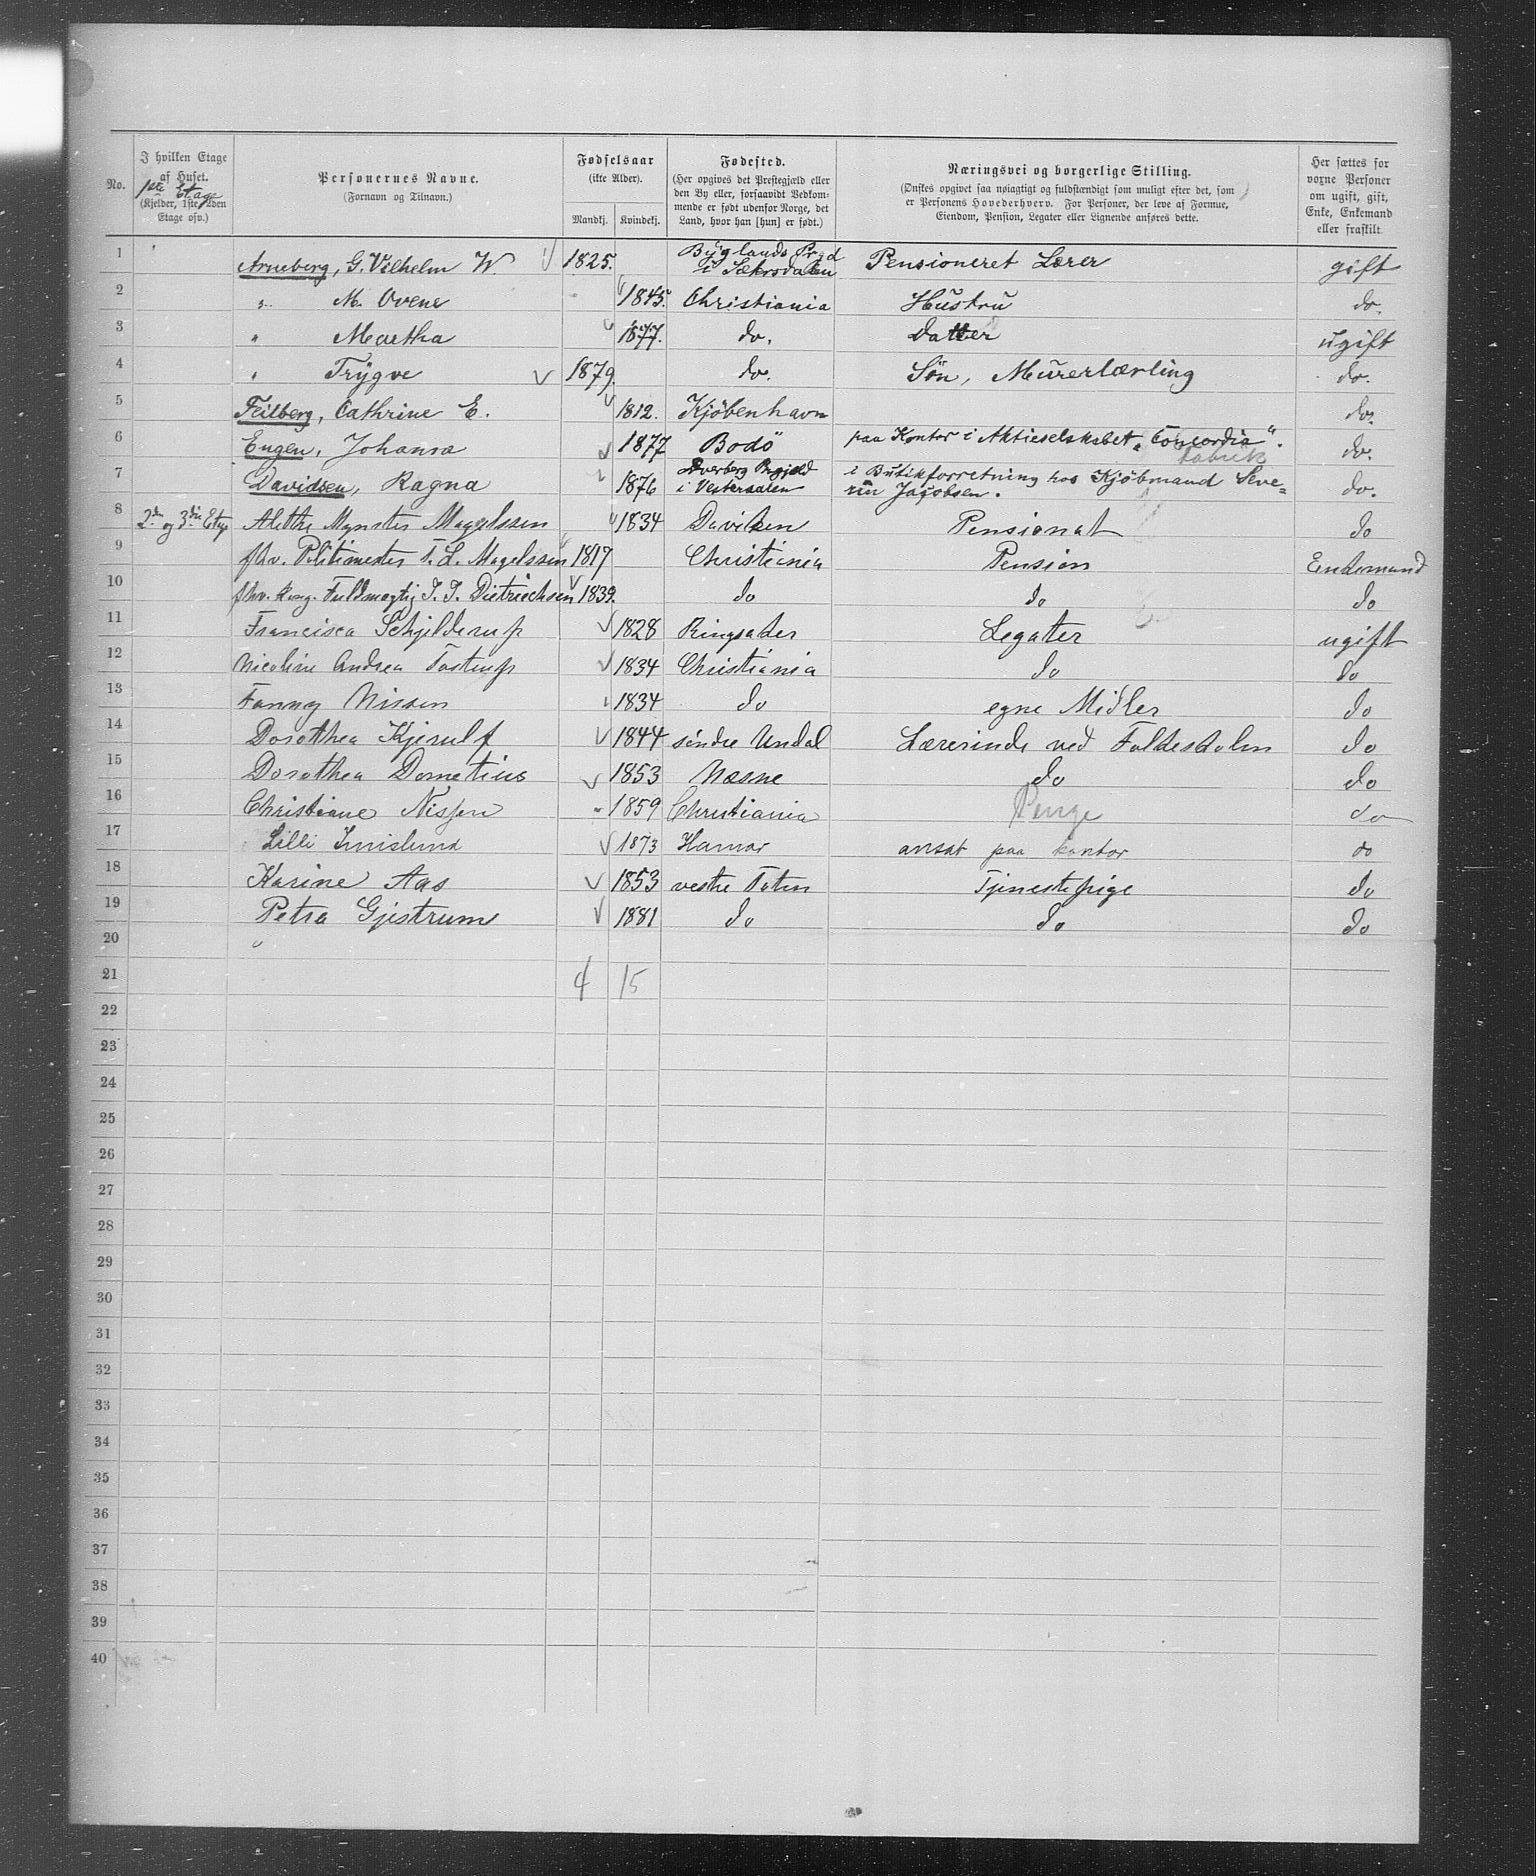 No.
I hvilken Etage
af Huset.
1ste Etage
(Kjelder, 1ste, 2den
Etage osv.)
Personernes Navne.
(Fornavn og Tilnavn.)
Fødselsaar
(ikte Alder).
Mandkj.
Kvindekj.
Fødested.
(Her opgives det Prestegjæld eller
den By eller, forsaavidt Vedkom-
mende er født udenfor Norge, det
Land, hvor han [hun] er født.)
Næringsvei og borgerlige Stilling.
(Ønskes opgivet saa nøiagtigt og fuldstændigt som muligt efter det, som
er Personens Hovederhverv. For Personer, der leve af Formue,
Eiendom, Pension, Legater eller Lignende anføres dette.
Her sættes for
voxne Personer
om ugift, gift,
Enke, Enkemand
eller fraskilt.
1 Arneberg, G. Vilhelm W. 1825. Byglands Prgd i Sætersdalen Pensioneret Lærer gift
2 " M. Ovene 1845. Christiania Hustru do.
3 " Martha 1877. do. Datter ugift
4 " Trygve 1879. do. Søn, Murerlærling do.
5 Feilberg, Cathrine E. 1812. Kjøbenhavn do.
6 Engen, Johanna 1877 Bodö paa Kontor i Aktieselskabet "Concordia". fabrik do.
7 Davidsen, Ragna 1876 Prgjeld i Vesteraalen i Butikforretning hos Kjøbmand Seve= rin Jacobsen. do.
8 2den og 3die Etage Alethe Mynster Magelssen 1834 Daviken Pensionat do
9 fhv. Politimester T. L. Magelssen 1817 Christiania Pension Enkemand
10 fhv. Fuldmægtig J. J. Dietrichsen 1839. do do do
11 Francisca Schjelderup 1828 Ringsaker Legater ugift
12 Nicoline Andrea Tostrup 1834 Christiania do do
13 Fanny Nissen 1834 do egne Midler do
14 Dorothea Kjerulf 1844 søndre Undal Lærerinde ved do
15 Dorothea Dometius 1853 Næsne do do
16 Christiane Nissen 1859 Christiania Penge do
17 Lilli 1873 Hamar ansat paa kontor do
18 Karine Aas 1853 vestre Toten Tjenestepige do
19 Petra Gjestrum 1881 do do do
20 "
21 4 15
22
23
24
25
26
27
28
29
30
31
32
33
34
35
36
37
38
39
40